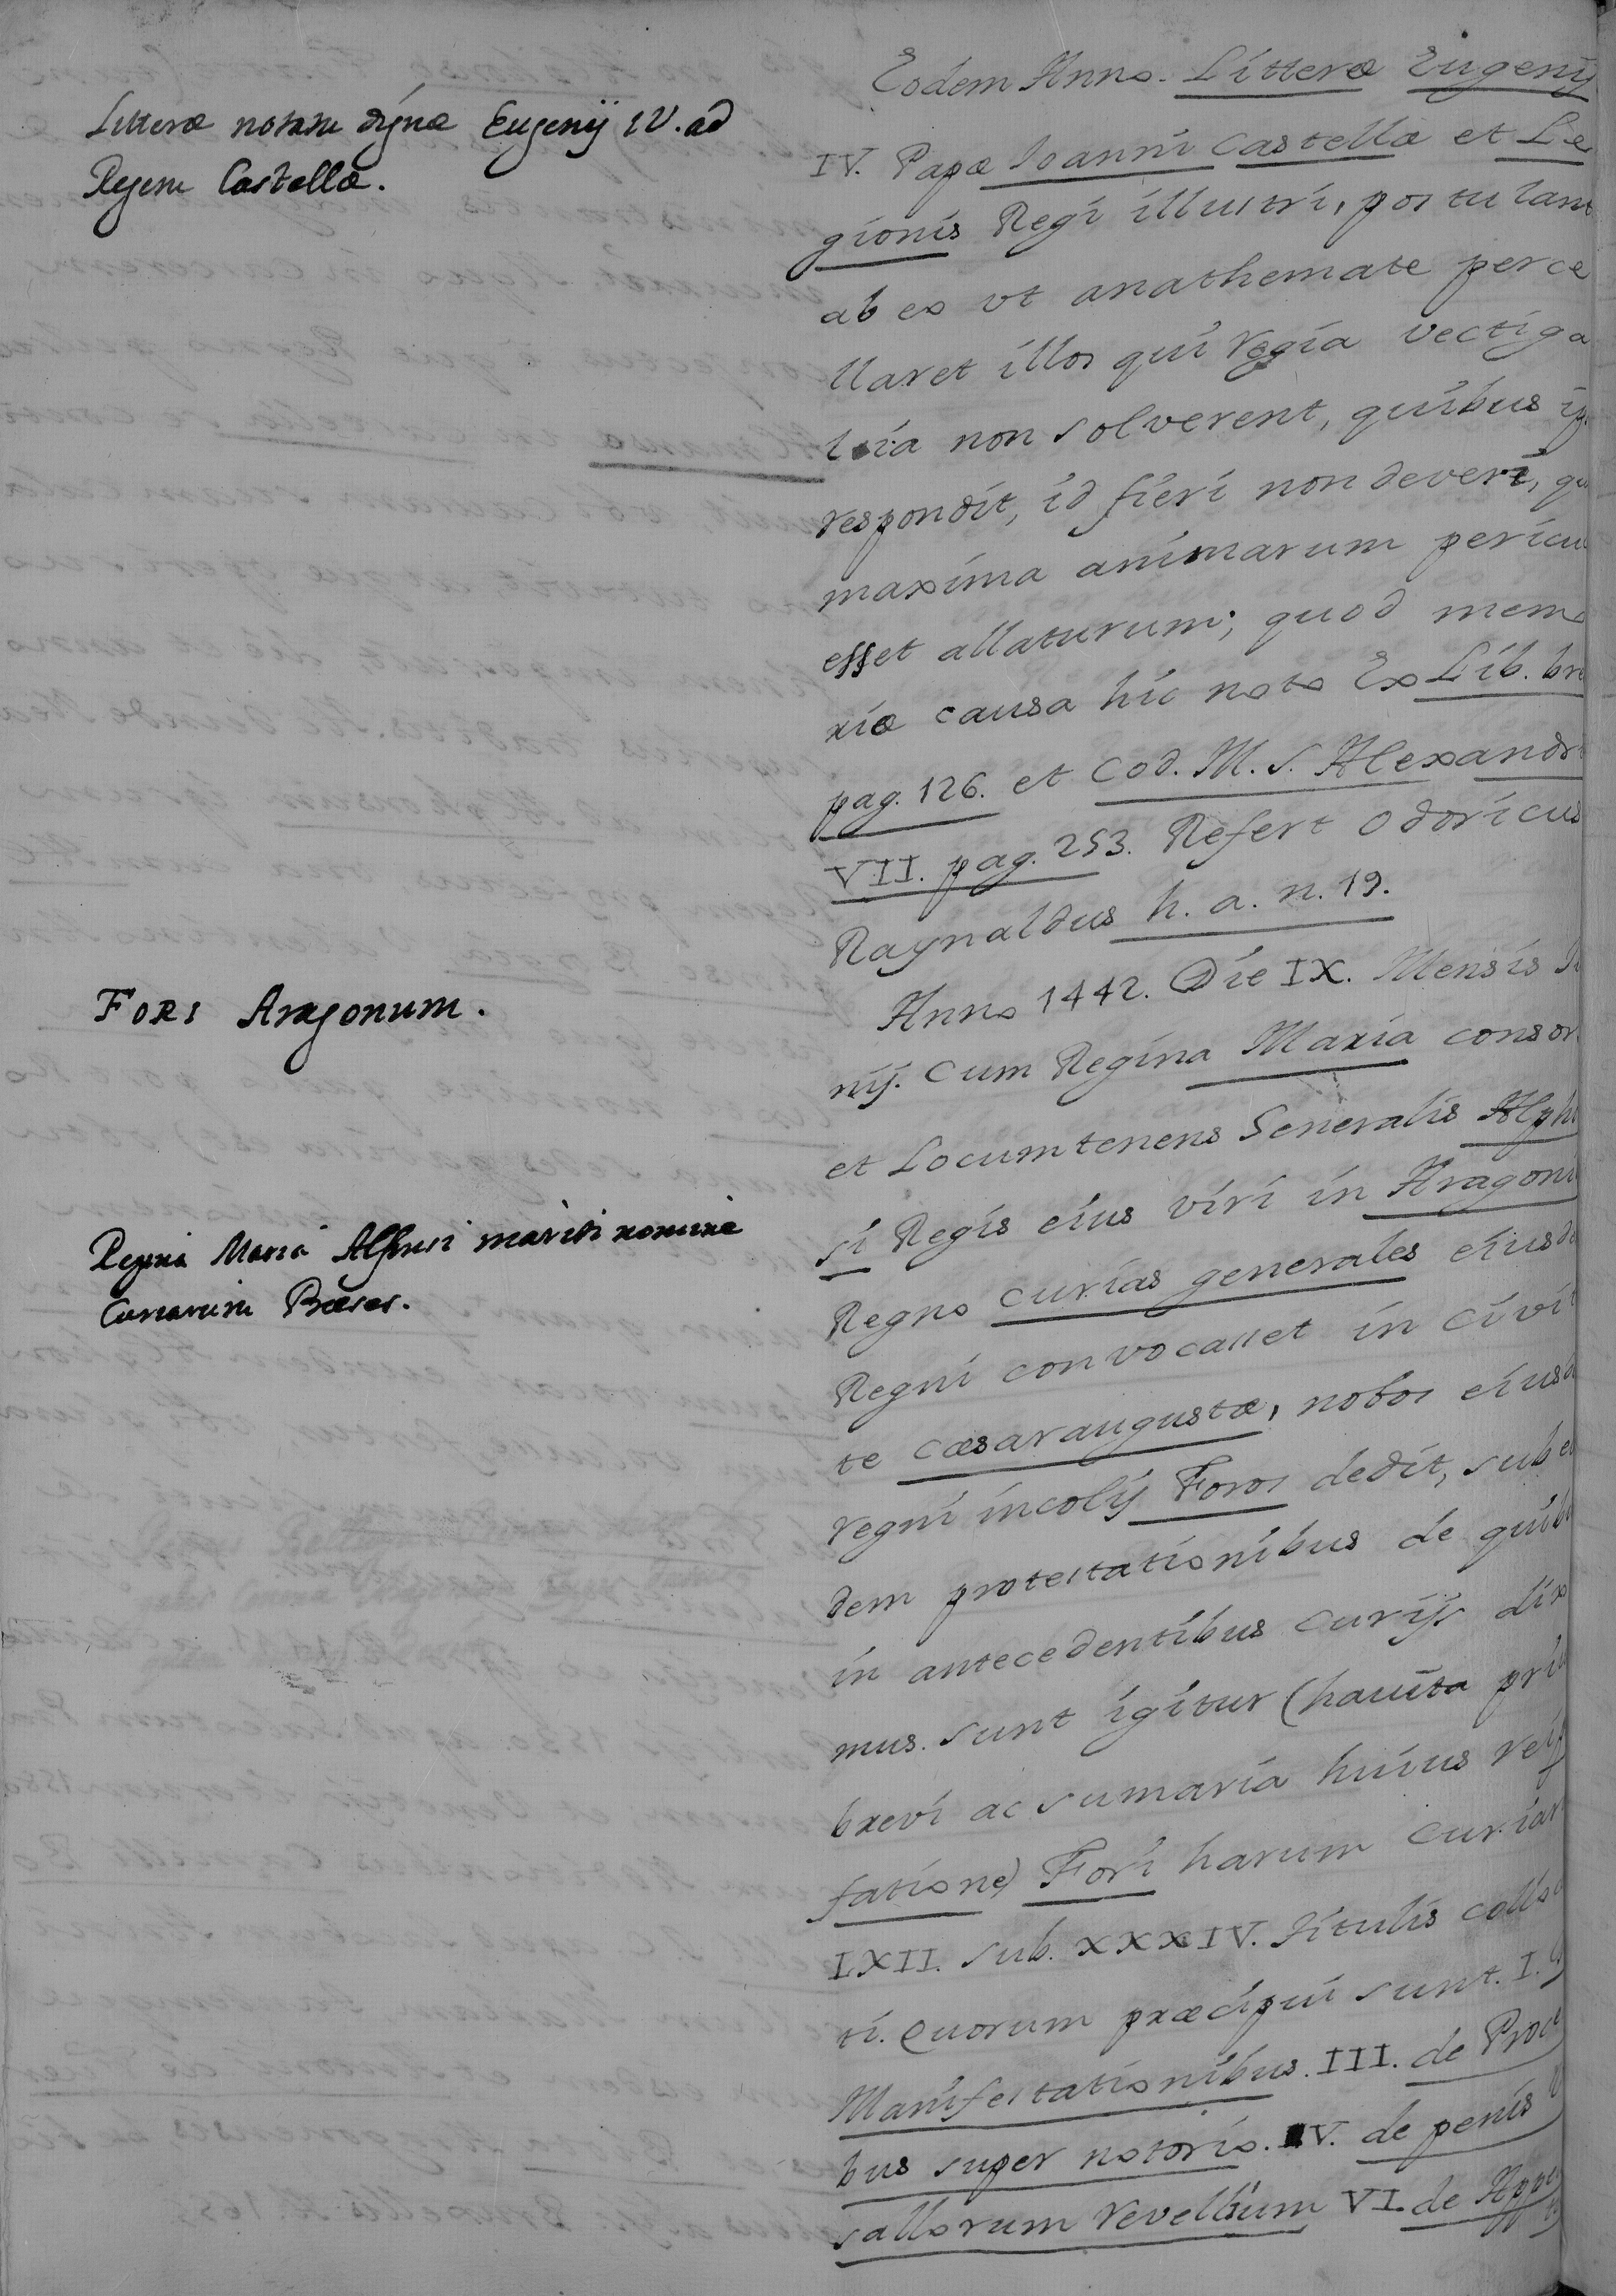 Litteræ notatu dignæ Eugenij IV. ad
Regem Castellæ.
Eodem Anno. Litteræ Eugenij
IV. Papæ Ioanni Castellæ et Le
gionis Regi illustri, postulant
ab eo vt anathemate perce
llaret illos qui regia vectiga
lia non solverent, quibus
respondit, id fieri non deveri, qu
maxima animarum pericu
esset allaturum; quod memo
riæ causa hic noto Ex Lib. bre
pag. 126. et Cod. M. S. Alexandri
VII. pag. 253. Refert Odoricus
Raynaldus h. a. n. 19.
Fori Aragonum.
Anno 1442. Die IX. Mensis Iu
nij. Cum Regina Maria consor
et Locumtenens Generalis Alpho
si Regis eius viri in Aragoni
Regina Maria Alfonsi mariti nomine
Curiarum Præses.
Regno curias generales eiusde
Regni convocasset in Civit
te Cæsaraugustæ, nobos eiusd
regni incolis Foros dedit, sub e
dem protestationibus de quib
in antecedentibus curijs dix
mus. sunt igitur (hauita pri
brevi ac sumaria huius reip
fatione) Fori harum curiar
LXII. sub. XXXIV. titulis collo
ti. Quorum præcipui sunt. I.
Manifestationibus. III. de Proce
bus super notorio. IV. de penis
sallorum revellium VI. de Appe